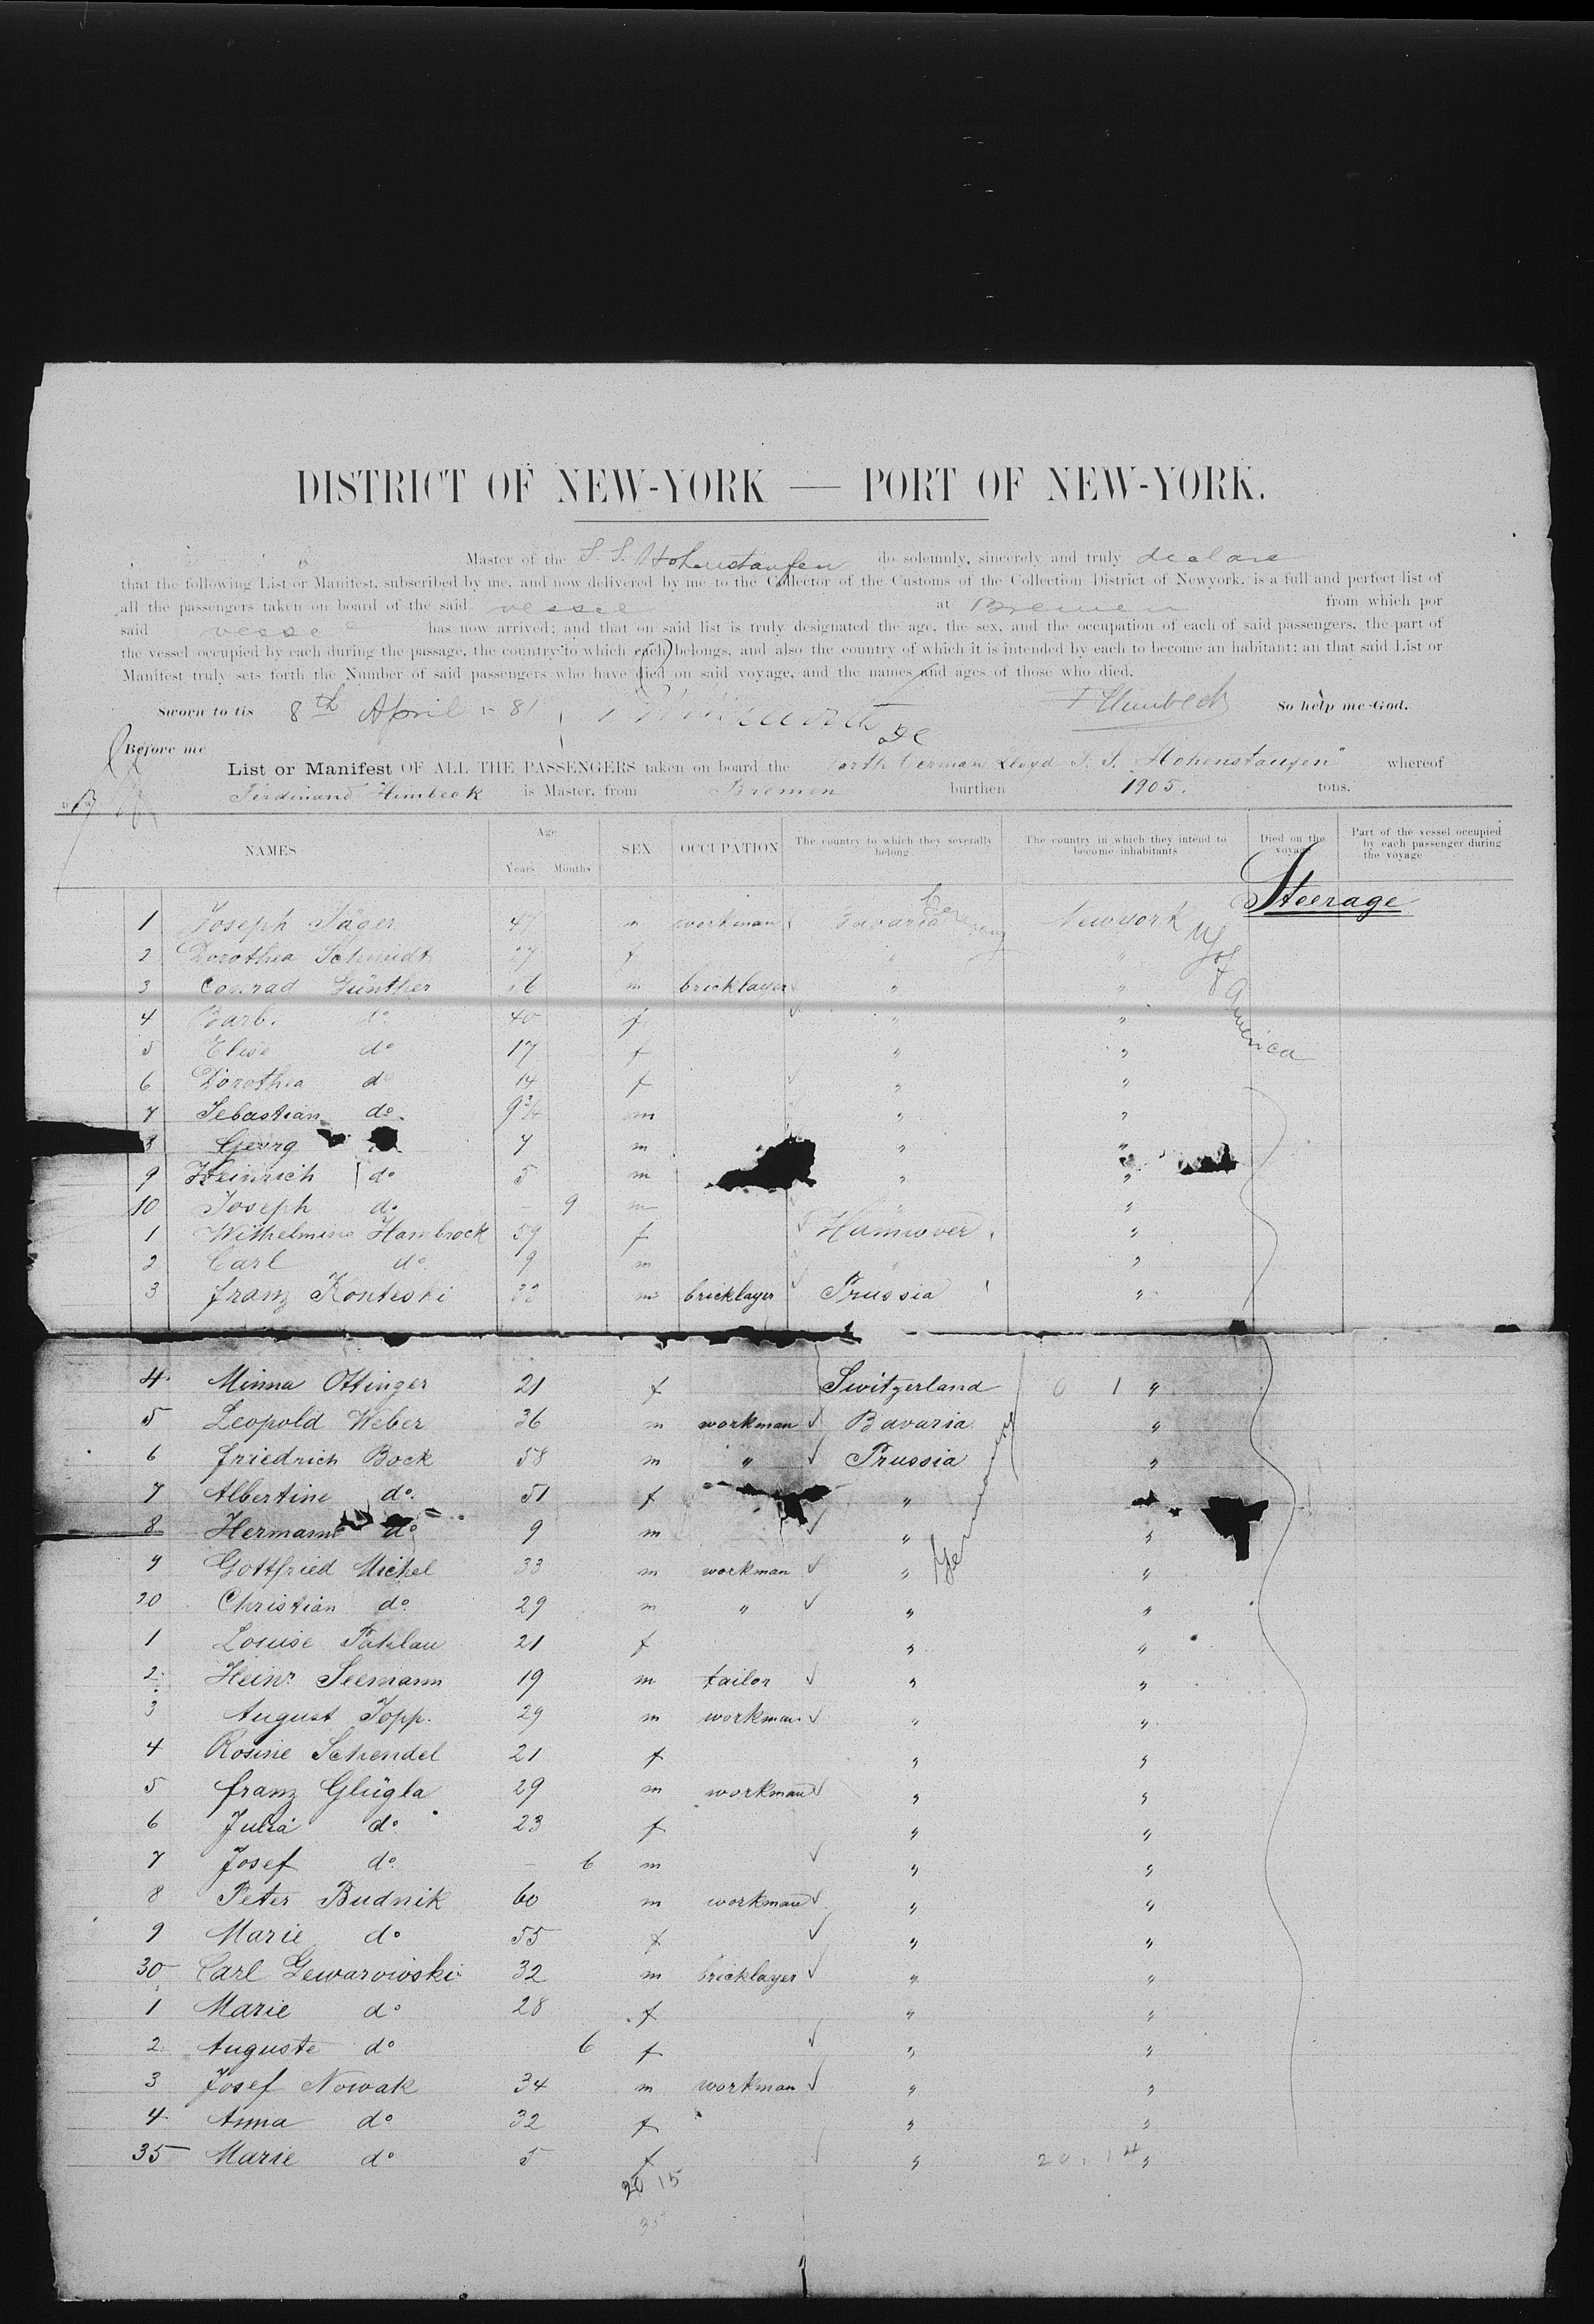 DISTRICT OF NEW-YORK — PORT OF NEW-YORK.
Master of the S. S. Hohenstaufen do solemnly, sincerely and truly declare
that the following List or Manifest, subscribed by me, and now delivered by me to the Collector of the Customs of the Collection District of Newyork, is a full and perfect list of
all the passengers taken on board of the said vessel at Bremen from which por
said vessel has now arrived; and that on said list is truly designated the age, the sex, and the occupation of each of said passengers, the part of
the vessel occupied by each during the passage, the country to which each belongs, and also the country of which it is intended by each to become an habitant; an that said List or
Manifest truly sets forth the Number of said passengers who have died on said voyage, and the names and ages of those who died.
Sworn to tis 8th April 81 So help me God.
Before me
List or Manifest OF ALL THE PASSENGERS taken on board the North German Lloyd S. S. "Hohenstaufen" whereof
Ferdinand Himbeck is Master, from Bremen burthen 1905. tons.
NAMES Age Years Months SEX OCCUPATION The country to which they severally belong The country in which they intend to become inhabitants Died on the voyage Part of the vessel occupied by each passenger during the voyage
Steerage
1 Joseph Jäger 47 m workman Bavaria Germany Newyork US of America
2 Dorothea Schmidt 27 f " "
3 Conrad Günther m bricklayer " "
4 Barb. do 40 f " "
5 Elise do 17 f " "
6 Dorothea do 14 f " "
7 Sebastian do. 9 3/4 m " "
8 Georg 7 m " "
9 Heinrich do 5 m " "
10 Joseph do. – 9 m " "
1 Wilhelmine Hambrock 59 f Hannover "
2 Carl do 9 m " "
3 Franz Konteski 33 m bricklayer Prussia "
4 Minna Ottinger 21 f Switzerland 0 1 "
5 Leopold Weber 36 m workman Bavaria "
6 Friedrich Bock 58 m " Prussia "
7 Albertine do. 51 f " "
8 Hermann do 9 m " " Germany
9 Gottfried Michel 33 m workman " "
20 Christian do. 29 m " " "
1 Louise Pahlau 21 f " "
2 Heinr. Seemann 19 m tailor " "
3 August Topp. 29 m workman " "
4 Rosine Schendel 21 f " "
5 Franz Glügla 29 m workman " "
6 Julia do. 23 f " "
7 Josef do. – 6 m " "
8 Peter Budnik 60 m workman " "
9 Marie do 55 f " "
30 Carl Gewarowski 32 m bricklayer " "
1 Marie do 28 f " "
2 Auguste do 6 f " "
3 Josef Nowak 34 m workman " "
4 Anna do 32 f " "
35 Marie do 5 f " 20. 14 "
20 15
35